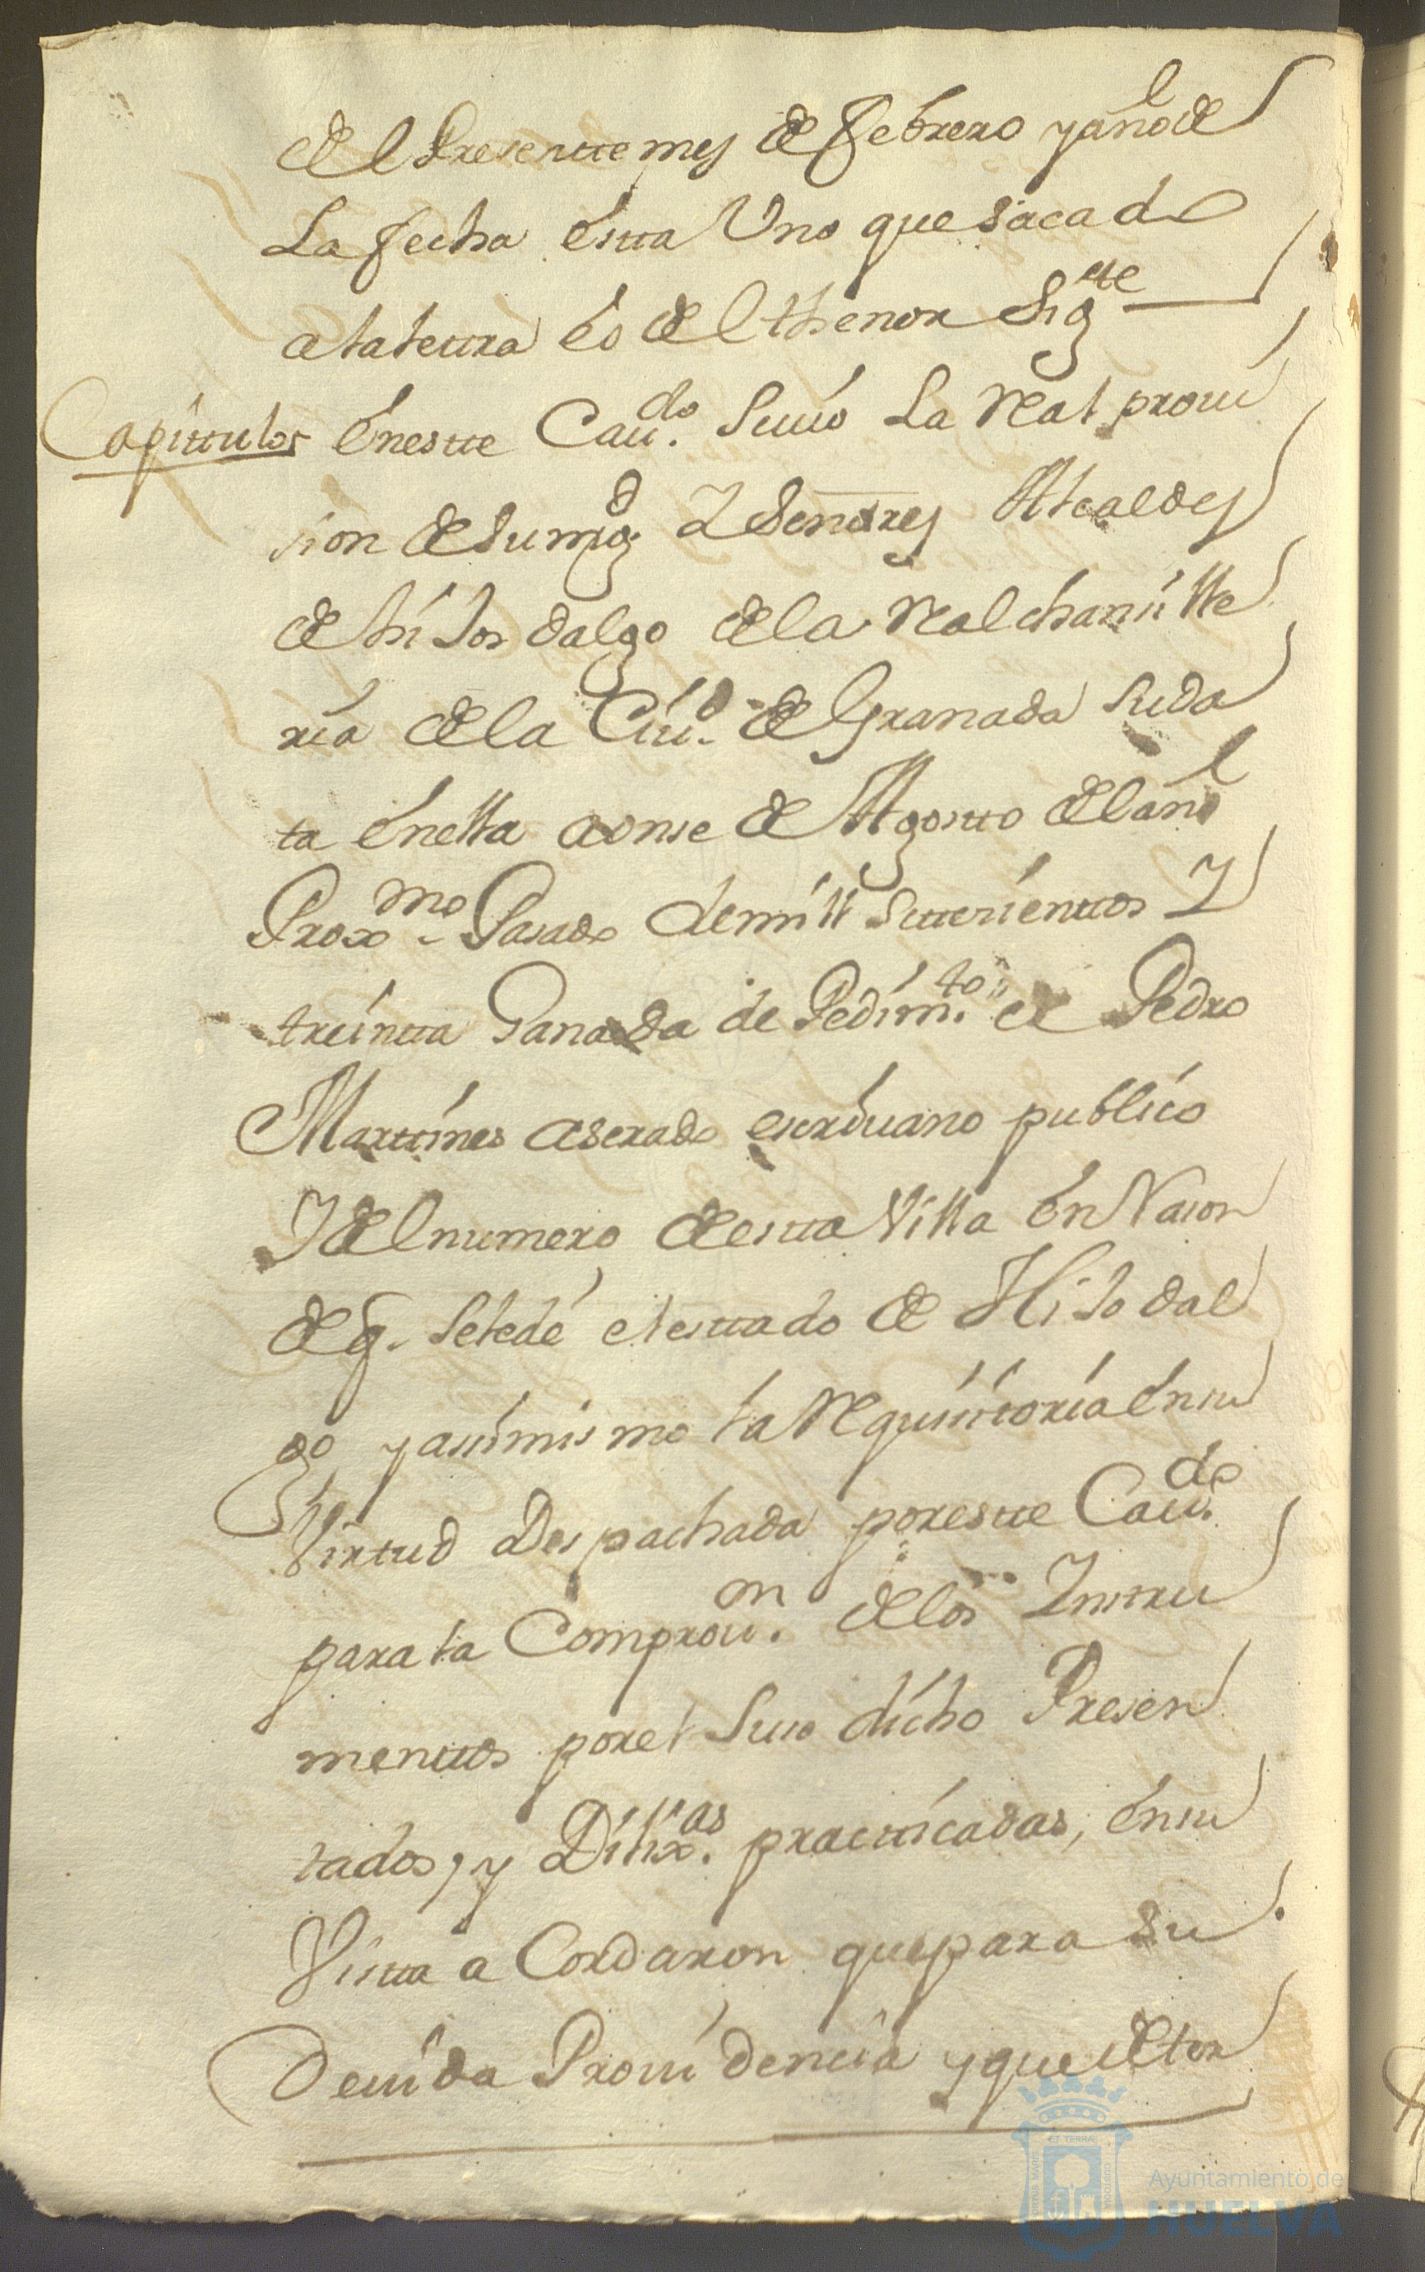 del Presentte mes de febrero y año de
La fecha estta Uno que sacado
a la letra es del thenor Sigtte
Capittulos Enestte Caudo. Se uio La Real proui
sion de su magd. Y Señores Alcaldes
de hijos dalgo de la Real chansille
ria de la Ciud. de Granada su da
ta Enella a onse de Agostto del año
Proxmo. Pasado de mill settesienttos Y
treintta Ganada de Pedimto. de Pedro
Marttines aserado escriuano publico
Y del numero de estta Villa En Rason
de q. se le de el esttado de Hijo dal
go y asimismo la Requisitoria Ensu
Virtud Despachada porestte Caudo.
para la Comproun. de los Instru
menttos por el Suso dicho Presen
tados, y Dilixas. practticadas, Ensu
Vistta a Cordaron que para su
Deuida Prouidencia y que el ter
Ayuntamiento de
HUELVA